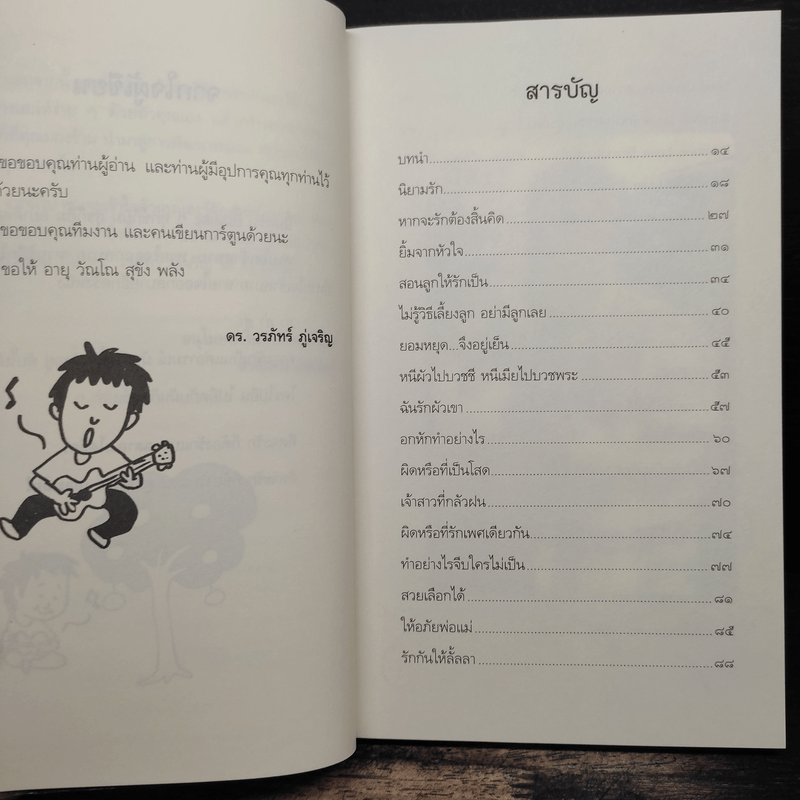 ขอขอบคุณท่านผู้อ่าน และท่านผู้มีอุปการคุณทุกท่านไว้
ด้วยนะครับ
ขอขอบคุณทีมงาน และคนเขียนการ์ตูนด้วยนะ
ขอให้ อายุ วัณโณ สุขัง พลัง
ดร. วรภัทร์ ภู่เจริญ
สารบัญ
บทนำ ๑๔
นิยามรัก ๑๘
หากจะรักต้องสิ้นคิด ๒๗
ยิ้มจากหัวใจ ๓๑
สอนลูกให้รักเป็น ๓๔
ไม่รู้วิธีเลี้ยงลูก อย่ามีลูกเลย ๔๐
ยอมหยุด...จึงอยู่เย็น ๔๕
หนีผัวไปบวชชี หนีเมียไปบวชพระ ๕๓
ฉันรักผัวเขา ๕๗
อกหักทำอย่างไร ๖๐
ผิดหรือที่เป็นโสด ๖๗
เจ้าสาวที่กลัวฝน ๗๐
ผิดหรือที่รักเพศเดียวกัน ๗๔
ทำอย่างไรจีบใครไม่เป็น ๗๗
สวยเลือกได้ ๘๑
ให้อภัยพ่อแม่ ๘๕
รักกันให้ลั้ลลา ๘๘